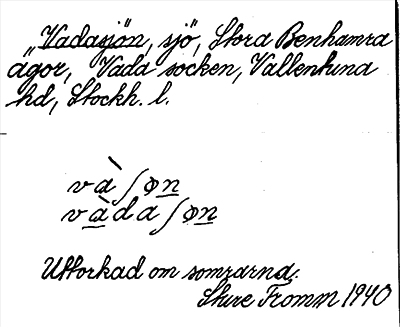 „Vadasjön, sjö, Stora Benhamra
ägor, Vada socken, Vallentuna
hd, Stockh. l.
vàʃɸn
vàdaʃɸn
Uttorkad om somrarna.
Sture Fromm 1940